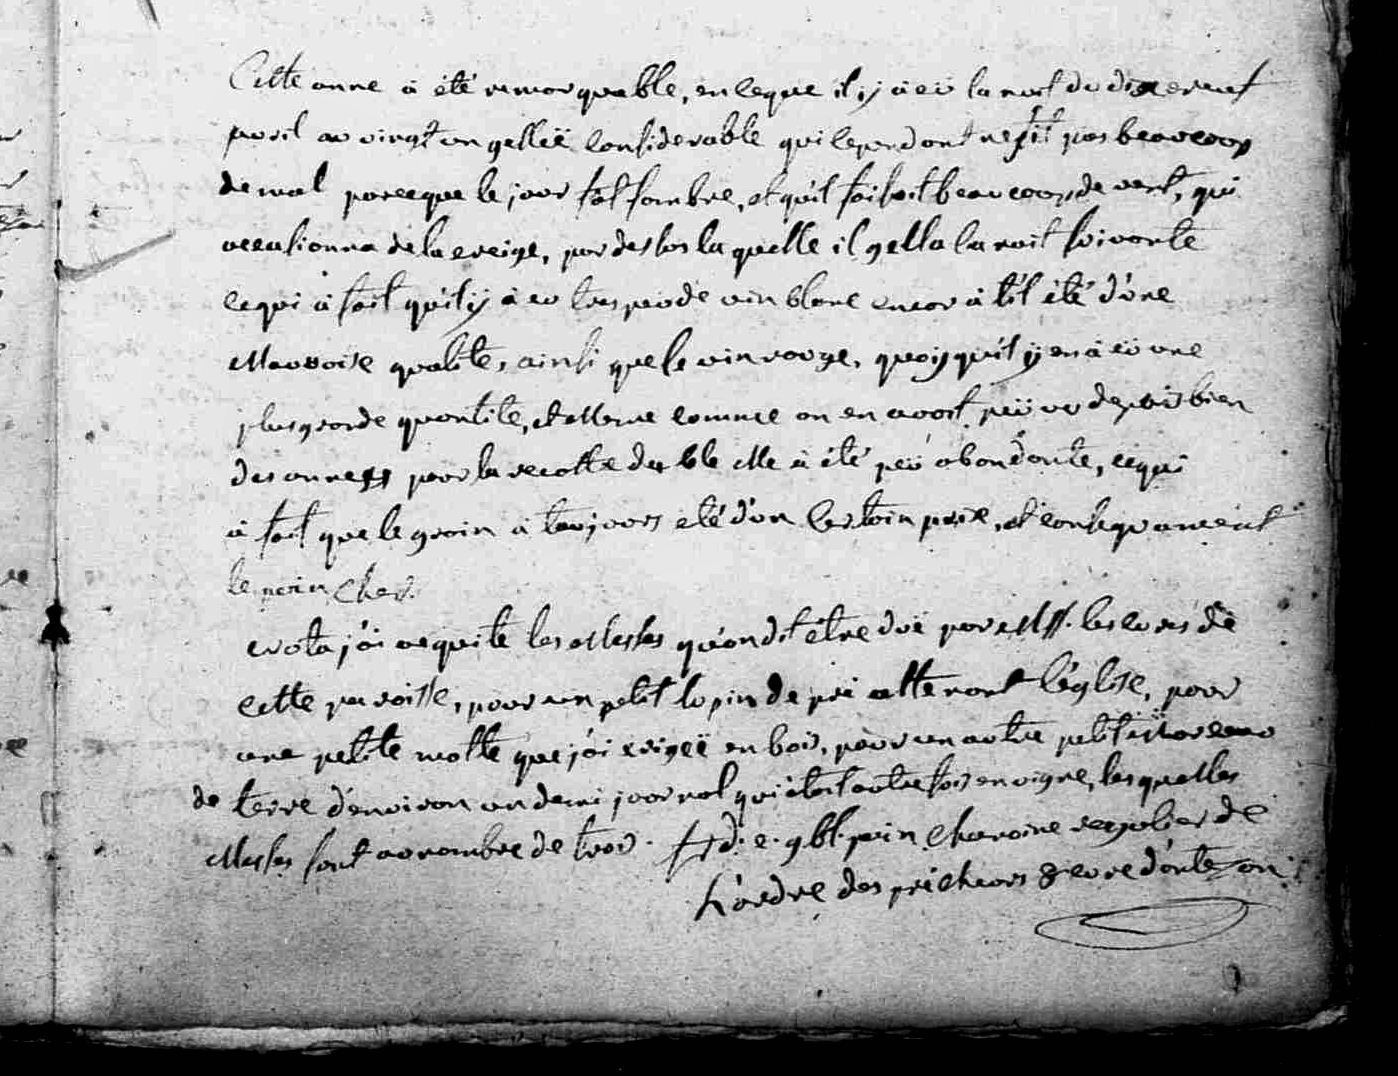 Cette anne à été remarquable, en ceque il ij à eü la nuit du dixeneuf
avril au vingt un gelleë considerable qui cependant ne fit pas beaucoup
de mal parceque le jour fût sombre, et qu'il faisoit beaucoup de vent, qui
occasionna de la neige, par dessus la quelle il gella la nuit suivante
cequi à fait qu'il ij à eu tres peu de vin blanc encor à t'il été d'une
Mauvaise qualité, ainsi que le vin rouge, quoij qu'il ÿ en à eü une
plus grande quantité, et Meme comme on en avoit peü vu depuis bien
des annees pour la recolte du blé elle à été peü abondante, cequi
à fait que le grain à toujours eté d'un certain prix, et consequament
le pain cher.
nota j'ai acquité les Messes qu'on dit être duë par MM. les curés de
cette paroisse, pour un petit lopin de pré attenant l'église, pour
une petite motte que j'ai erigeë en bois, pour un autre petit Morceau
de terre d'environ un demi journal qui étoit autrefois en vigne, les quelles
Messes sont au nombre de trois. f. d. e. gbl. pain Chanoine regulier de
L'ordre des precheurs & cure d'antezan